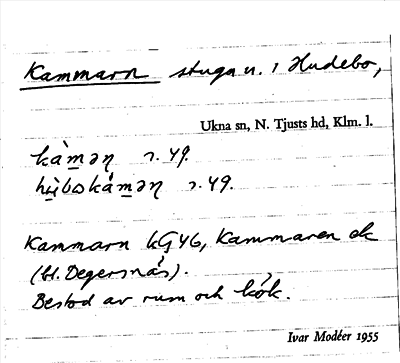 Kammarn stuga u. i Hudebo,
Ukna sn, N. Tjusts hd, Klm. l.
kàmən̥ r. 49.
hùbokámən̥ r. 49.
Kammarn kG 46, Kammaren ek
(bl. Degersnäs).
Bestod av rum och kök.
Ivar Modéer 1955